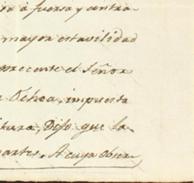 à fuerza y contra
mayor estavilidad
presente el Señor
Ochoa, impuesta
tura, Dijo que la
partes. A cuya obser